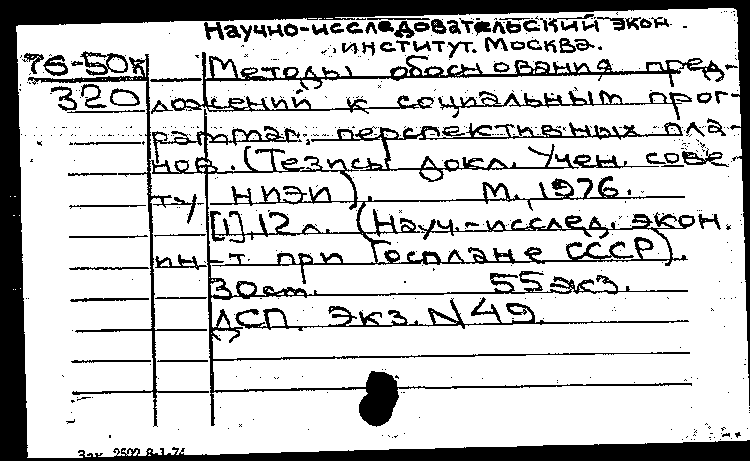 Научно-исследовательский экон.
институт. Москва.
76-50к Методы обоснования пред-
320 ложений к социальным прог-
раммам перспективных пла-
нов. (Тезисы докл. Учен. сове-
ту НИЭИ). М., 1976.
[1], 12 л. (Науч.-исслед. экон.
ин-т при Госплане СССР).
30 см. 55 экз.
ДСП. Экз. N 49.
Зак. 2592 8-1-74